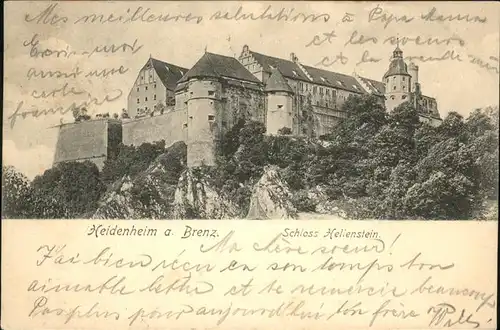 Mes meilleures salutations à Papa Mama
et les soeurs
et la
Ecris-moi
aussi une
carte
Heidenheim a. Brenz. Schloss Hellenstein.
Ma chère soeur!
J'ai bien reçu en son temps ton
aimable lettre et te remercie beaucoup.
Pas plus pour aujourd'hui ton frère Willy